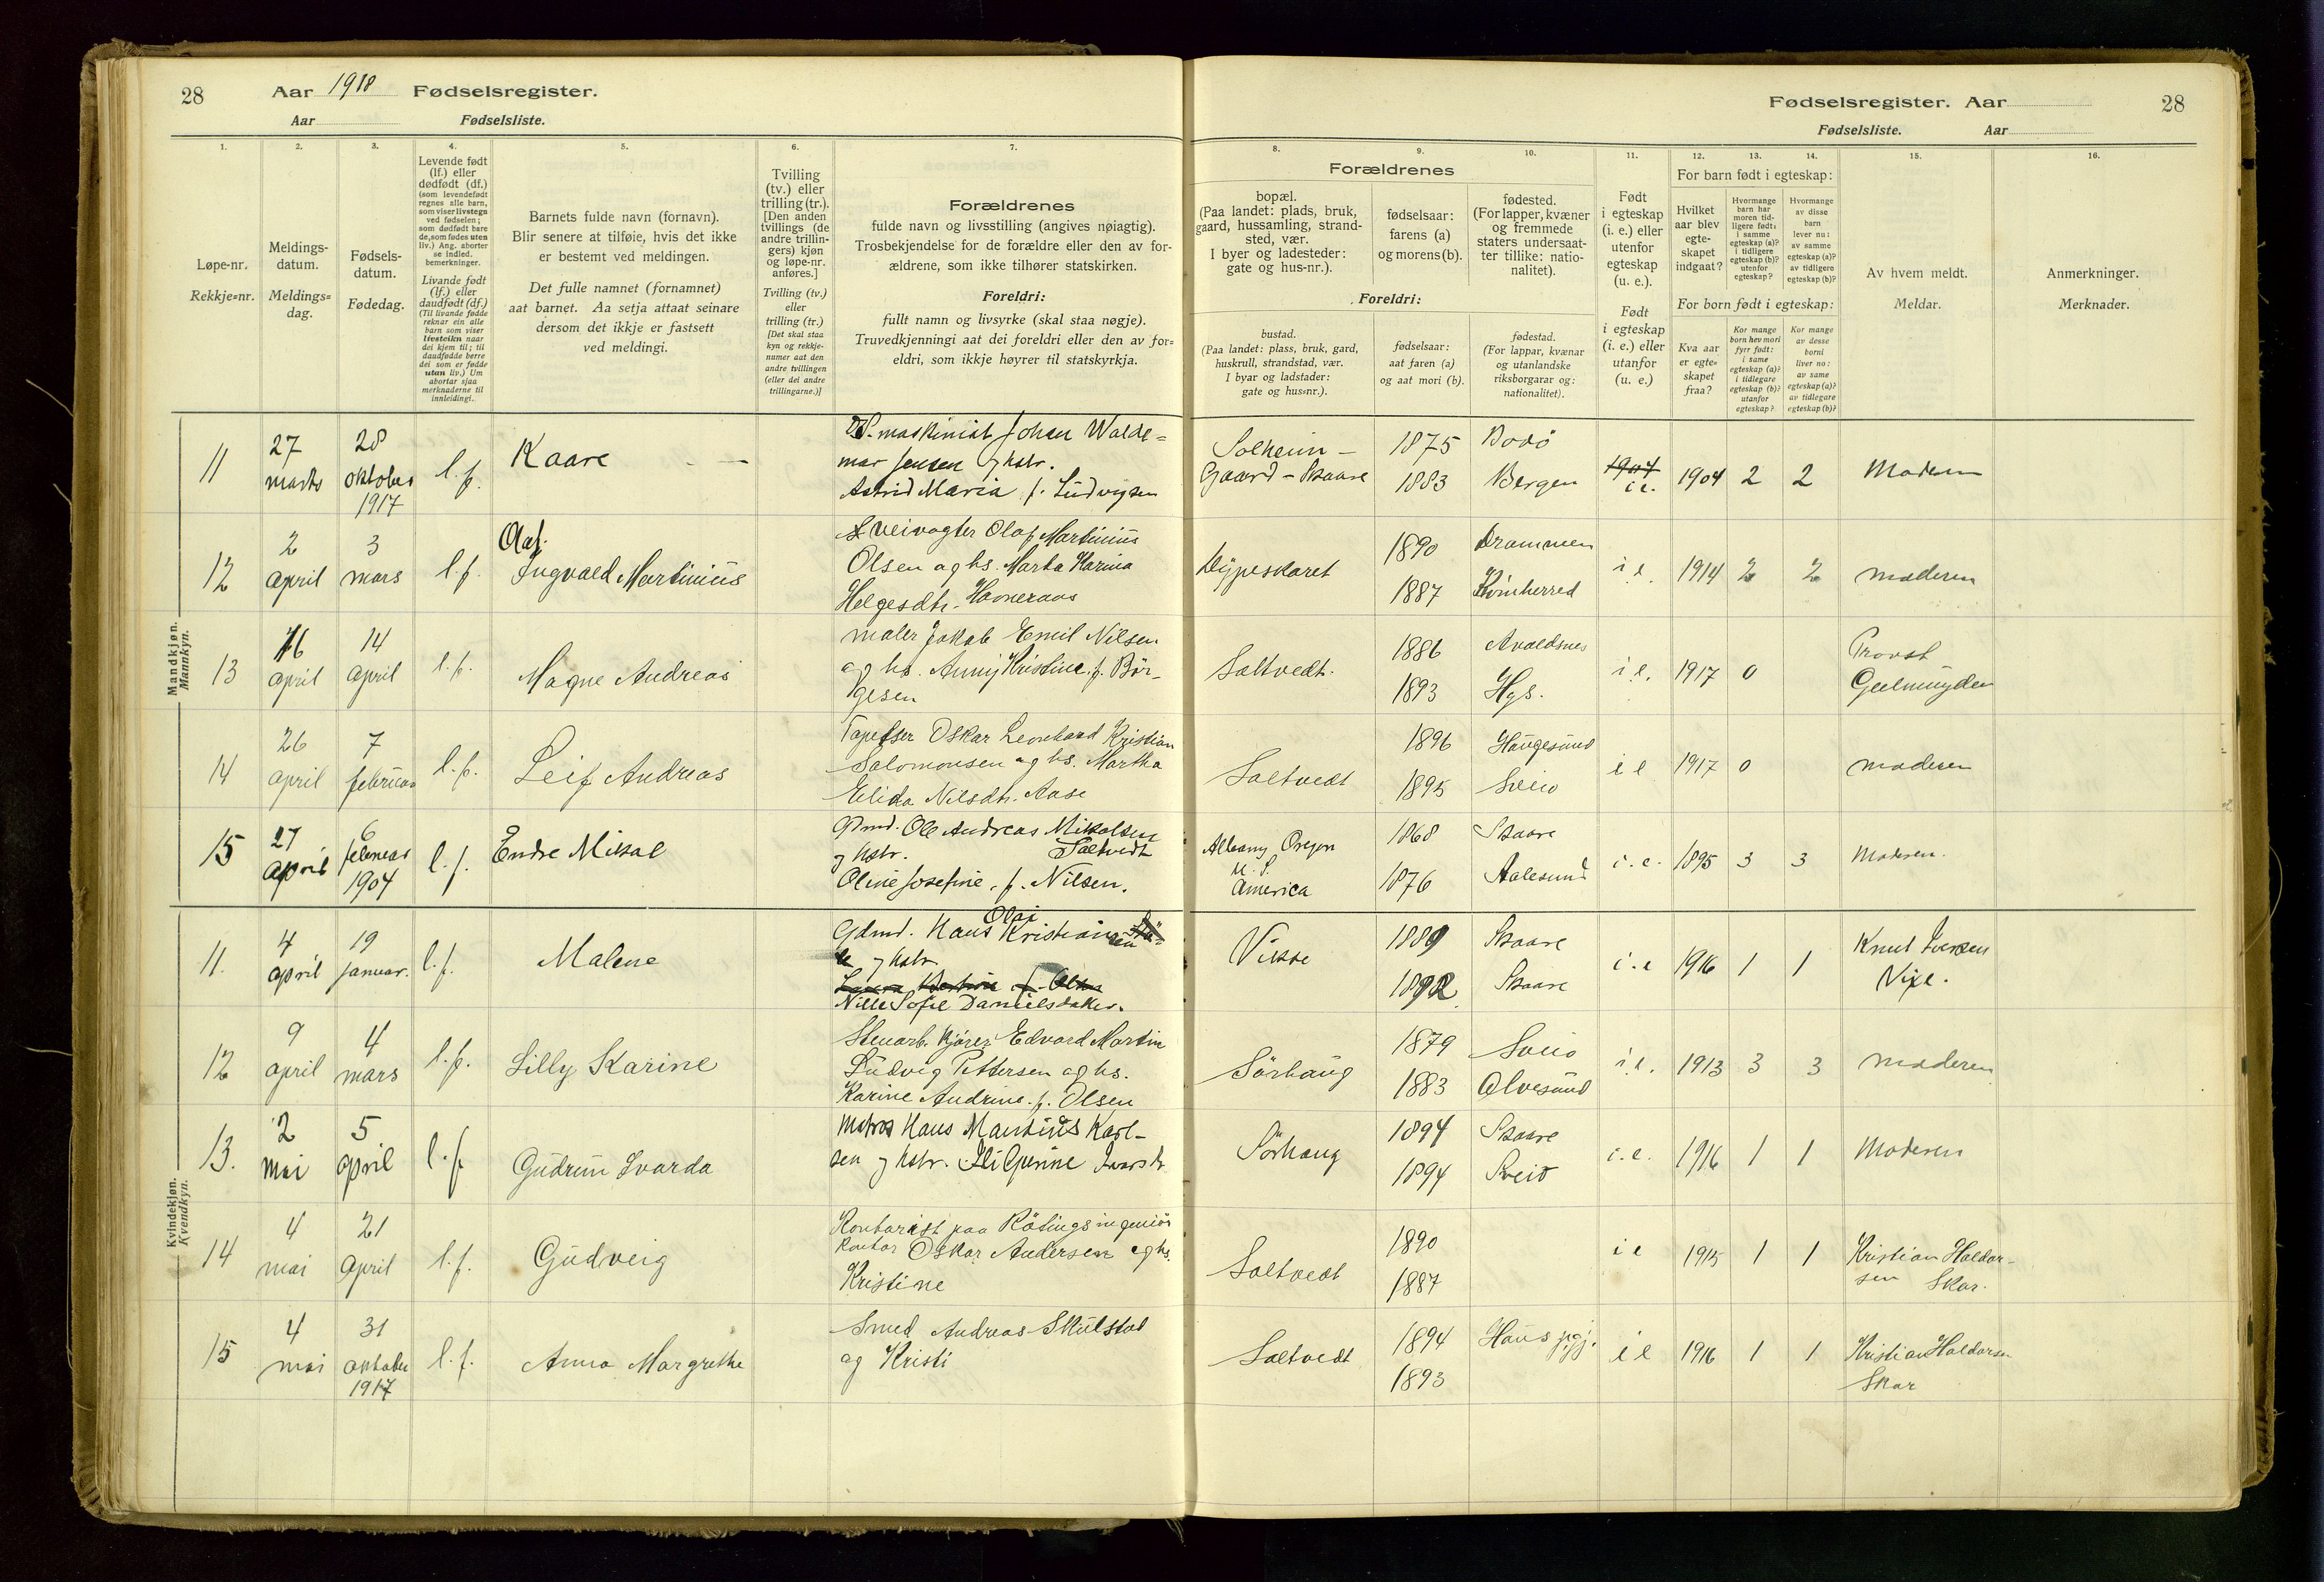 28
Aar 1918 Fødselsregister.
Aar Fødselsliste.
Fødselsregister. Aar
28
Fødselsliste. Aar
1.
2.
3.
4.
5.
6.
7.
8.
9.
10.
11.
12.
13.
14.
15.
16.
Løpe-nr.
Rekkje=nr.
Meldings-
datum.
Meldings=
dag.
Fødsels-
datum.
Fødedag.
Levende født
(lf.) eller
dødfødt (df.)
(som levendefødt
regnes alle barn,
som viser livstegn
ved fødselen;
som dødfødt bare
de, som fødes uten
liv.) Ang. aborter
se indled.
bemerkninger.
Livande født
(lf.) eller
daudfødt (df.)
(Til livande fødde
reknar ein alle
barn som viser
livsteikn naar
dei kjem til; til
daudfødde berre
dei som er fødde
utan liv.) Um
abortar sjaa
merknaderne til
innleidingi.
Barnets fulde navn (fornavn).
Blir senere at tilføie, hvis det ikke
er bestemt ved meldingen.
Det fulle namnet (fornamnet)
aat barnet. Aa setja attaat seinare
dersom det ikkje er fastsett
ved meldingi.
Tvilling
(tv.) eller
trilling (tr.).
[Den anden
tvillings (de
andre trillin-
gers) kjøn
og løpe-nr.
anføres.]
Tvilling (tv.)
eller
trilling (tr.)
[Det skal staa
kyn og rekkje-
numer aat den
andre tvillingen
(eller dei andre
trillingarne.)]
Forældrenes
fulde navn og livsstilling (angives nøiagtig).
Trosbekjendelse for de forældre eller den av for-
ældrene, som ikke tilhører statskirken.
Foreldri:
fullt namn og livsyrke (skal staa nøgje).
Truvedkjenningi aat dei foreldri eller den av for=
eldri, som ikkje høyrer til statskyrkja.
Forældrenes
bopæl.
(Paa landet: plads, bruk,
gaard, hussamling, strand-
sted, vær.
I byer og ladesteder:
gate og hus-nr.).
fødselsaar:
farens (a)
og morens (b).
fødested.
(For lapper, kvæner
og fremmede
staters undersaat-
ter tillike: natio-
nalitet).
Foreldri:
bustad.
(Paa landet: plass, bruk, gard,
huskrull, strandstad, vær.
I byar og ladstader:
gate og hus=nr.).
fødselsaar:
aat faren (a)
og aat mori (b).
fødestad.
(For lappar, kvænar
og utanlandske
riksborgarar og:
nationalitet).
Født
i egteskap
(i. e.) eller
utenfor
egteskap
(u. e.).
Født
i egteskap
(i. e.) eller
utanfor
(u. e.)
For barn født i egteskap:
Hvilket
aar blev
egte-
skapet
indgaat?
Hvormange
barn har
moren tid-
ligere født:
i samme
egteskap (a)?
i tidligere
egteskap (b)?
utenfor
egteskap?
Hvormange
av disse
barn
lever nu:
av samme
egteskap (a)?
av tidligere
egteskap (b)?
For born født i egteskap:
Kva aar
er egte=
skapet
fraa?
Kor mange
born hev mori
fyrr født:
i same
egteskap (a)?
i tidlegare
egteskap (b)?
utanfor
egteskap?
Kor mange
av desse
borni
liver no:
av same
egteskap (a)?
av tidlegare
egteskap (b)?
Av hvem meldt.
Meldar.
Anmerkninger.
Merknader.
Mandkjøn.
Mannkyn.
11
27
marts
28
oktober
1917
l.f.
Kaare
maskinist Johan Walde=
mar Jensen og hstr.
Astrid Maria f. Ludvigsen
Solheim -
Gaard - Skaare
1875
1883
Bodö
Bergen
1904
i e.
1904
2
2
Moderen
12
2
april
3
mars
l.f.
Olaf
Ingvald Martinius
Veivogter Olaf Martinius
Olsen og hs. Marta Karina
Helgesdtr. Havneraas
Dypeskaret
1890
1887
Drammen
Kvinherred
i e.
1914
2
2
moderen
13
16
april
14
april
l.f.
Magne Andreas
maler Jakob Emil Nilsen
og hs. Anny Kristine f. Bør-
gesen
Saltvedt.
1886
1893
Avaldsnes
Hgs.
i e.
1917
0
Provst
Geelmuyden
14
26
april
7
februar
l.f.
Leif Andreas
Tapetser Oskar Leonhard Kristian
Salomonsen og hs. Martha
Elida Nilsdtr. Aase
Saltvedt
1896
1895
Haugesund
Sveio
i e
1917
0
moderen
15
27
april
6
februar
1904
l.f.
Endre Mikal
Gdmd. Ole Andreas Mikalsen
og hstr. Saltvedt
Oline Josefine f. Nilsen.
Albany Oregon
U. S.
America
1868
1876
Skaare
Aalesund
i. e.
1895
3
3
Moderen.
Kvindekjøn.
Kvendkyn.
11.
4
april
19
januar.
l.f.
Malene
Olai
Gdmd. Hans Kristiansen
og hstr
Nille Sofie Danielsdatter.
Vikse
1889
1892
Skaare
Skaare
i. e
1916
1
1
Knut Iversen
Vixe.
12
9
april
4
mars
l.f.
Lilly Karine
Stenarb. Kjører Edvard Martin
Ludvig Pettersen og hs.
Karine Andrine f. Olsen
Sörhaug
1879
1883
Sveio
Ølvesund
i. e.
1913
3
3
moderen
13.
2
mai
5
april
l.f
Gudrun Svarda
Matros Hans Mantius Karl-
sen og hstr. Ivarsdtr
Sörhaug
1894
1894
Skaare
Sveio
i. e.
1916
1
1
Moderen
14
4
mai
21
april
l.f.
Gudveig
Kontorist paa Rötingsingeniör
kontor Oskar Andersen og hs.
Kristine
Saltvedt
1890
1887
i e
1915
1
1
Kristian Haldor-
sen Skar.
15
4
mai
31
oktober
1917
l.f.
Anna Margrethe
Smed Andreas Skulstad
og Kristi
Saltvedt
1894
1893
Haus pgj.
i e
1916
1
1
Kristian Haldorsen
Skar